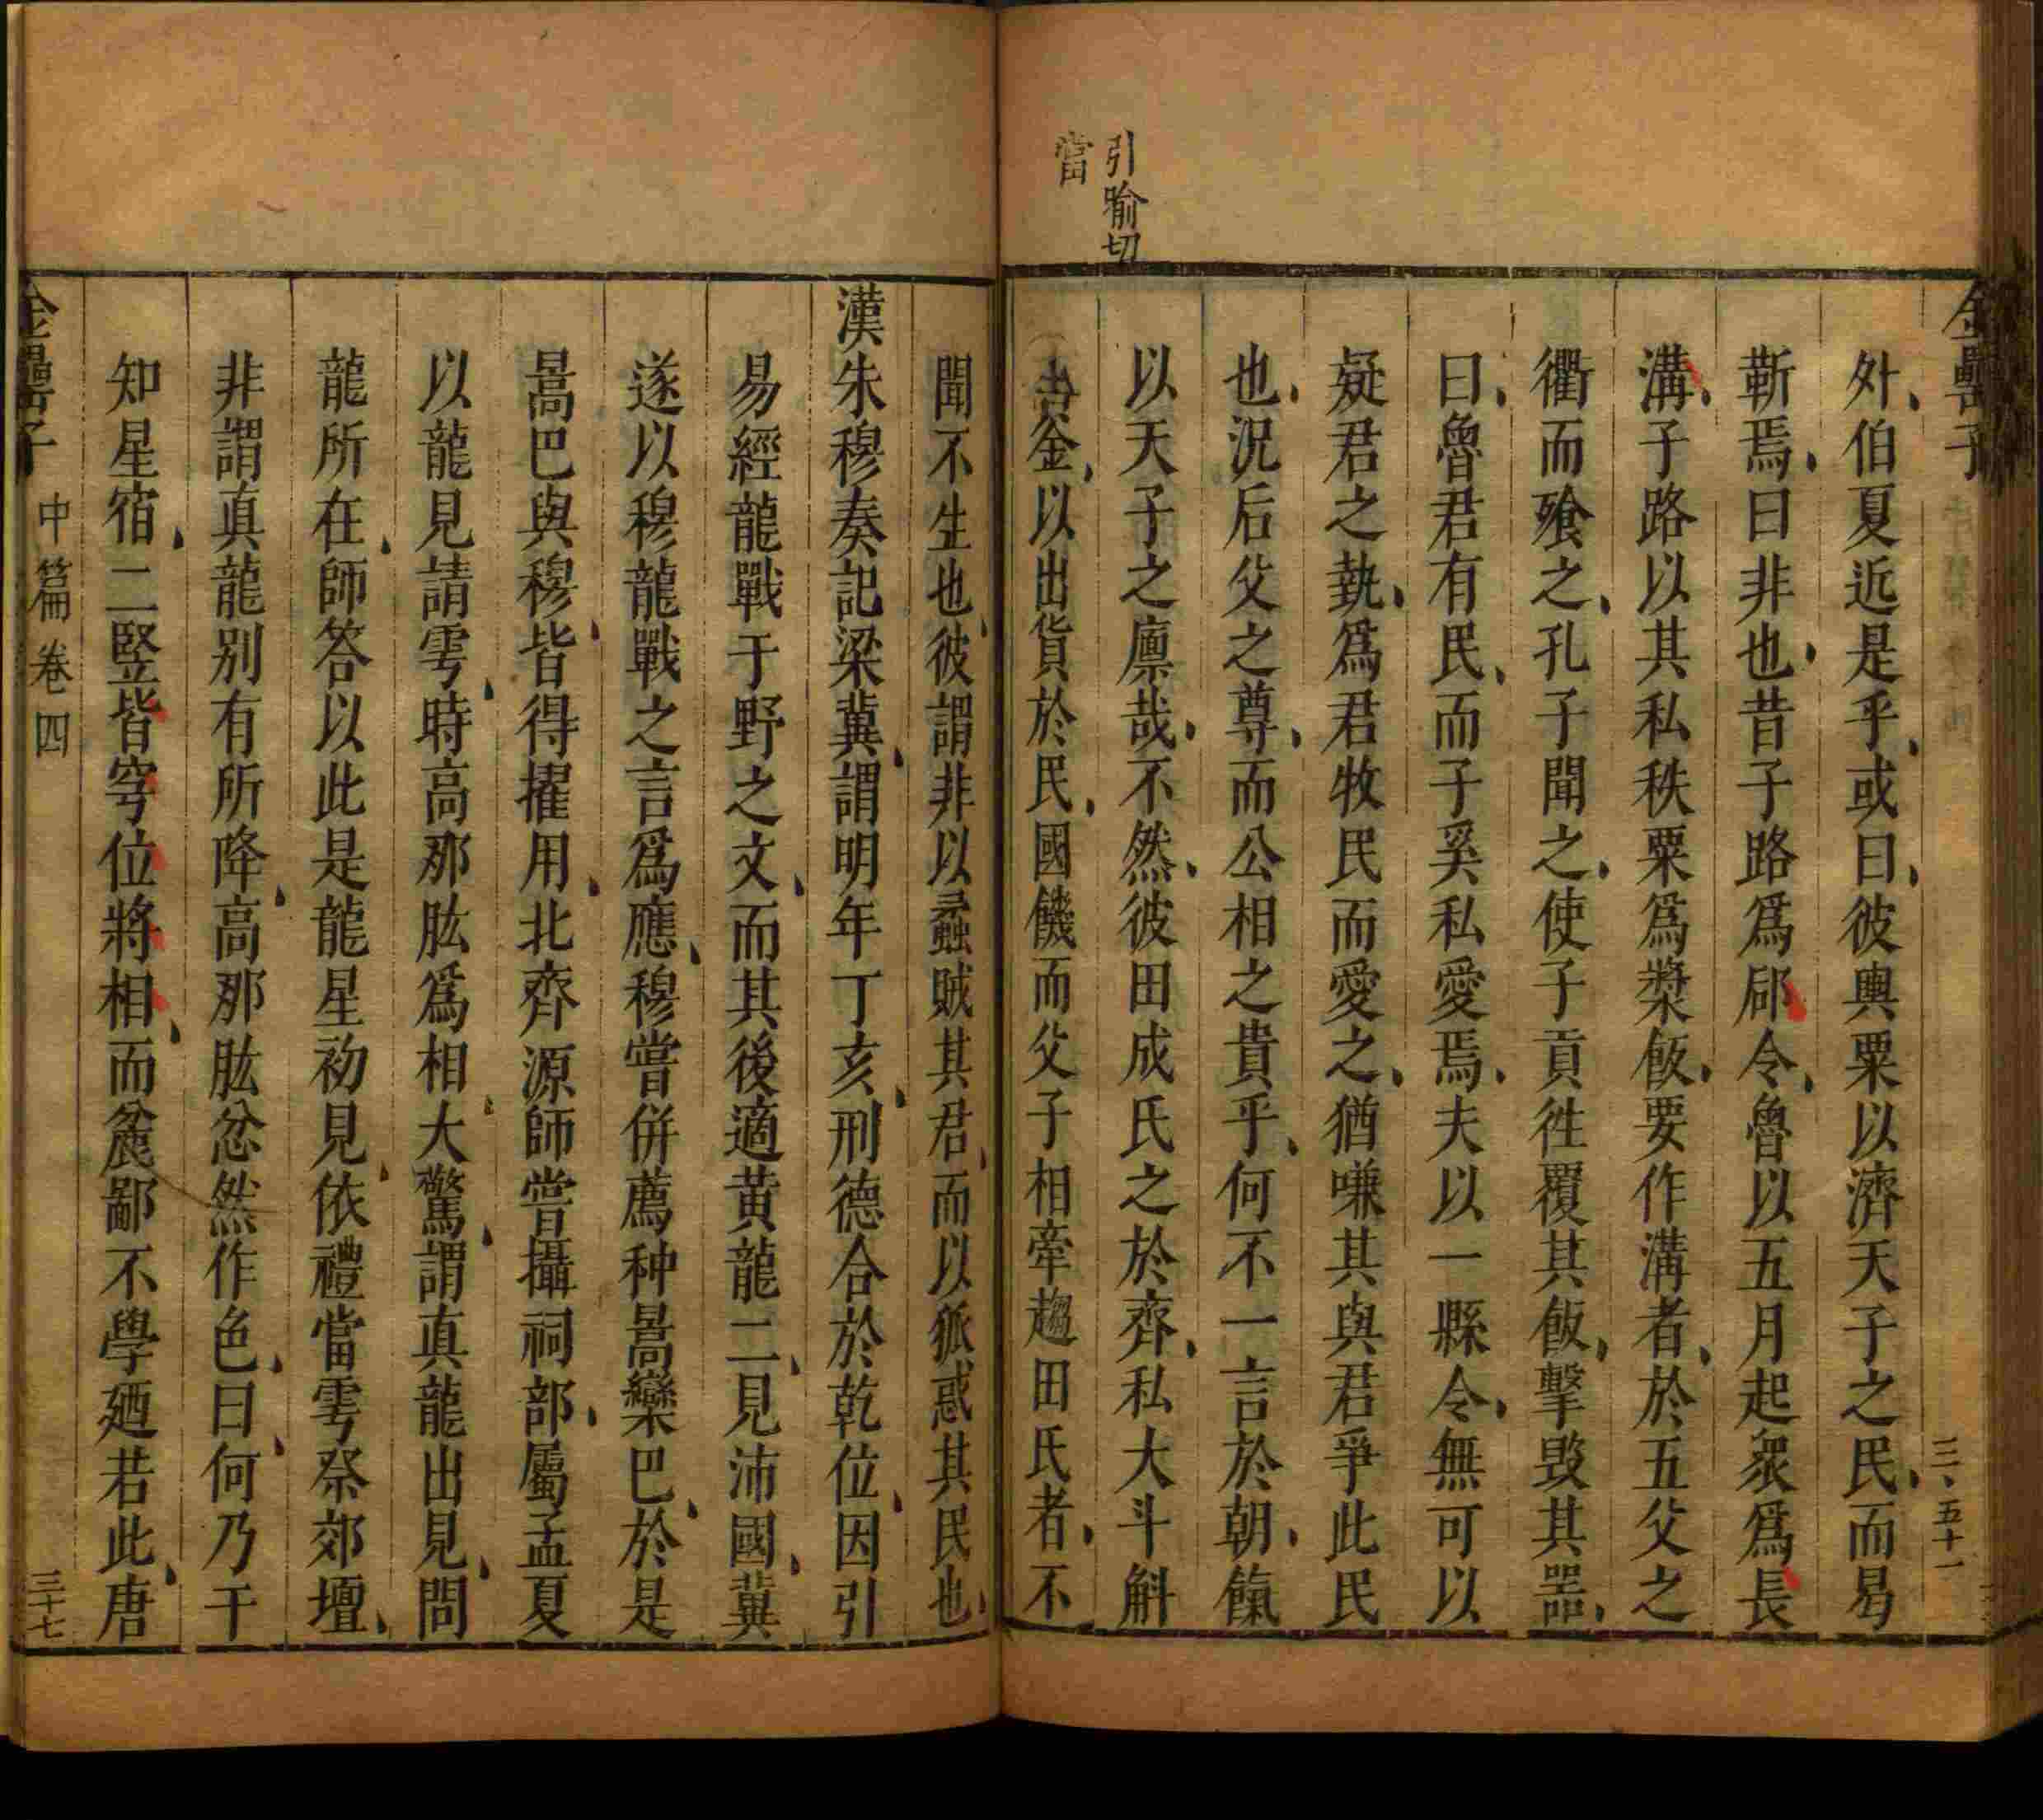 金罍子
三、五十一
外伯夏近是乎或曰彼輿粟以濟天子之民而曷
靳焉曰非也昔子路爲郈令魯以五月起衆爲長
溝子路以其私秩粟爲漿飯要作溝者於五父之
衢而飡之孔子聞之使子貢徃覆其飯擊毀其器
曰魯君有民而子奚私愛焉夫以一縣令無可以
疑君之埶爲君牧民而愛之猶嗛其與君爭此民
也况后父之尊而公相之貴乎何不一言於朝餼
以天子之廪哉不然彼田成氏之於齊私大斗斛
區金以出貨於民國饑而父子相牽趨田氏者不
引喻切
當
聞不生也彼謂非以蟊賊其君而以狐惑其民也
漢朱穆奏記梁冀謂明年丁亥刑德合於乾位因引
易經龍戰于野之文而其後適黃龍二見沛國冀
遂以穆龍戰之言爲應穆嘗併薦种暠欒巴於是
暠巴與穆皆得擢用北齊源師嘗攝祠部屬孟夏
以龍見請雩時高那肱爲相大驚謂真龍出見問
龍所在師答以此是龍星初見依禮當雩祭郊壇
非謂真龍别有所降高那肱忿然作色曰何乃干
知星宿二豎皆穹位將相而麄鄙不學廼若此唐
金罍子
中篇卷四
三十七